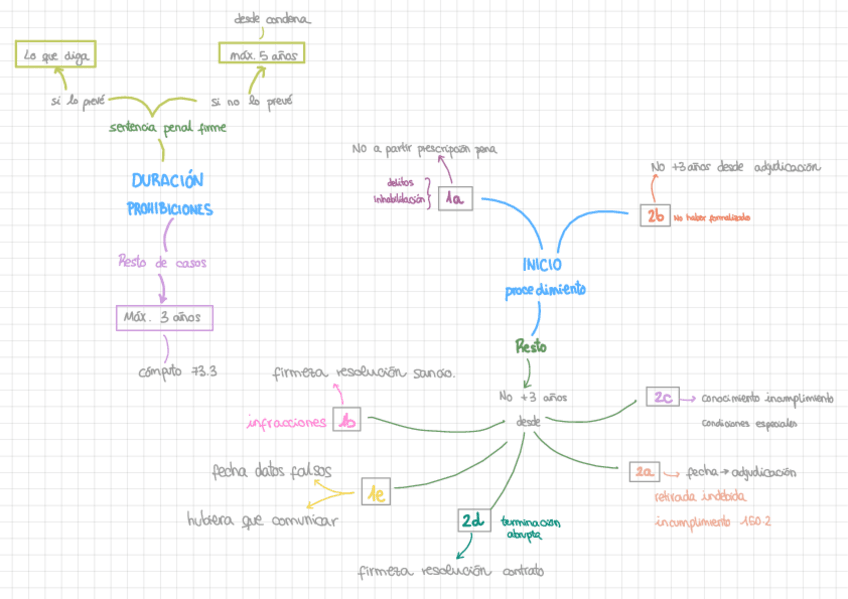 desde condena
máx. 5 años
Lo que diga
si lo prevé
si no lo prevé
sentencia penal firme
DURACIÓN
PROHIBICIONES
Resto de casos
Máx. 3 años
cómputo 73.3
No a partir prescripción pena
delitos
inhabilitación
1a
No +3 años desde adjudicación
2b
No haber formalizado
INICIO
procedimiento
Resto
No +3 años
desde
firmeza resolución sancio.
infracciones
1b
fecha datos falsos
1e
hubiera que comunicar
2d
terminación
abrupta
firmeza resolución contrato
2c
conocimiento incumplimiento
condiciones especiales
2a
fecha → adjudicación
retirada indebida
incumplimiento 150.2